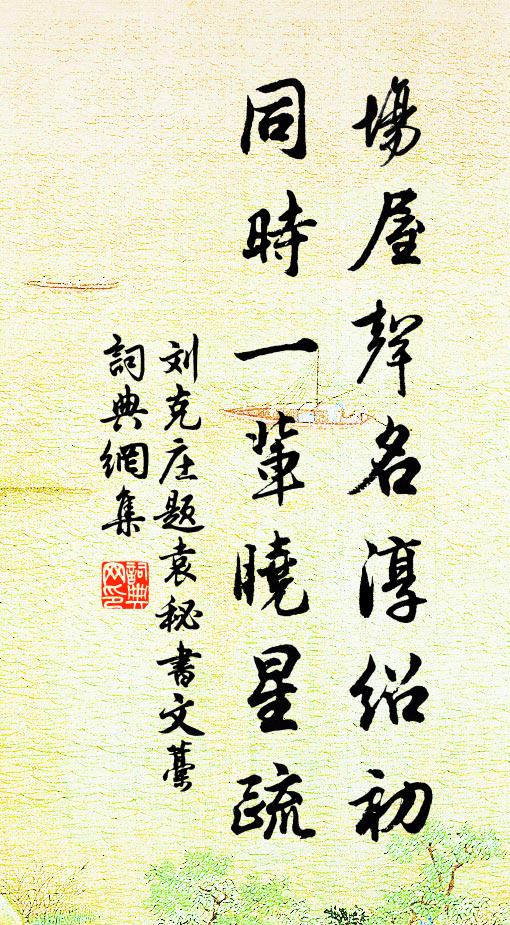 場屋聲名淳紹初
同時一輩曉星疏
刘克庄題袁秘書文藁
詞典網集
詞典网印